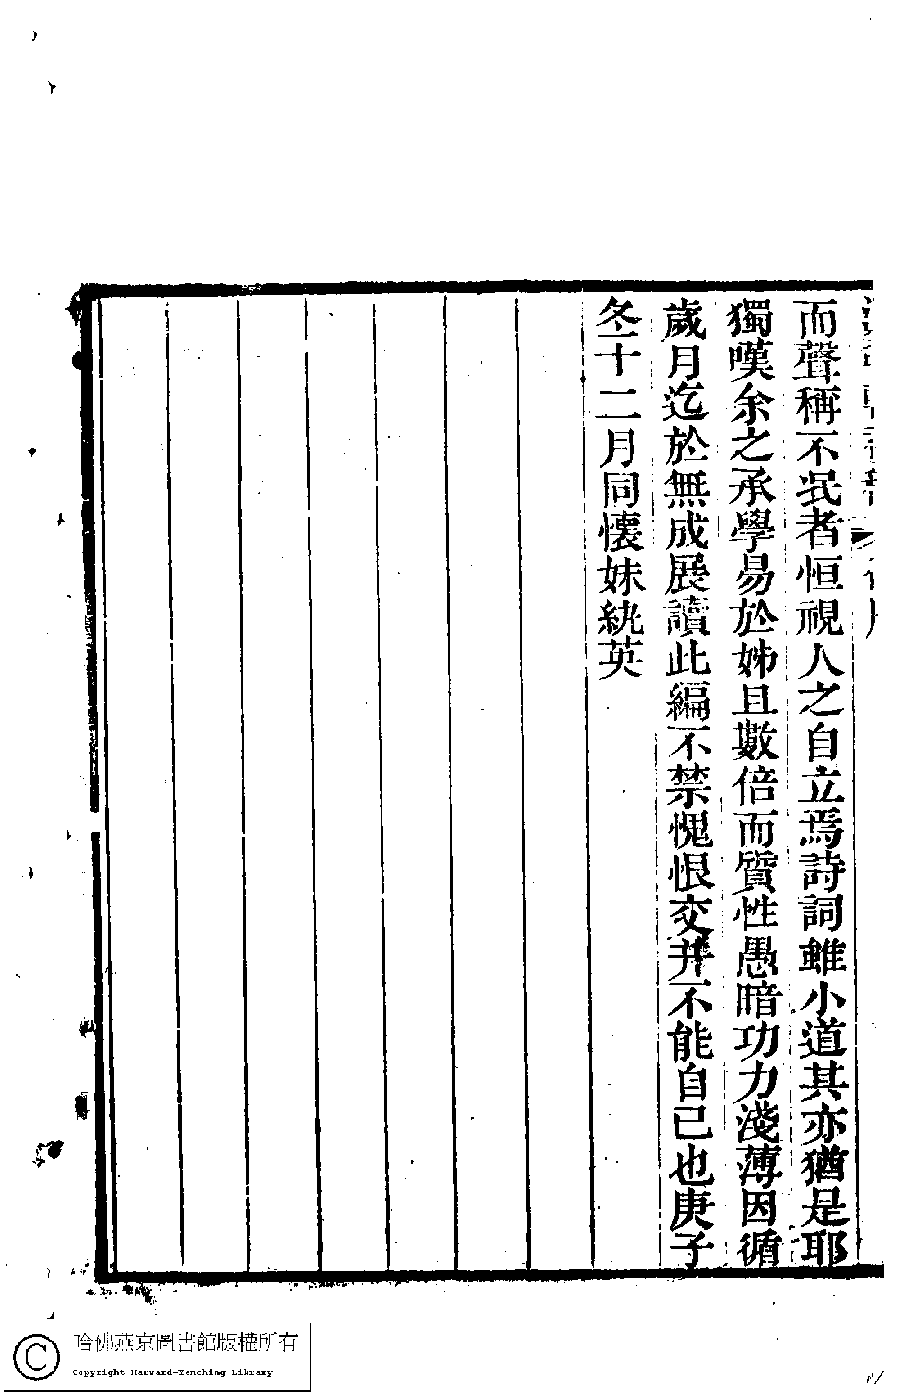 而聲稱不泯者恒視人之自立焉詩詞雖小道其亦猶是耶
獨嘆余之承學易於姊且數倍而質性愚暗功力淺薄因循
歲月迄於無成展讀此編不禁愧恨交并不能自已也庚子
冬十二月同懷妹紈英
哈佛燕京圖書館版權所有
Copyright Harvard-Yenching Library